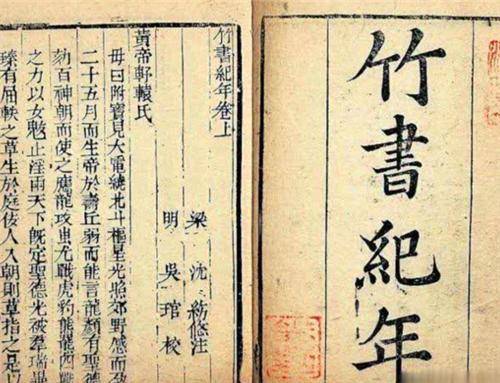 竹書紀年
竹書紀年卷上
梁 沈約修注
明 吳琯校
黃帝軒轅氏
母曰附寶見大電繞北斗樞星光照郊野感而孕
二十五月而生帝於壽丘弱而能言龍顏有聖德
劾百神朝而使之應龍攻蚩尤戰虎豹熊羆四
之力以女魃止淫雨天下既定聖德光被羣瑞
臻有屈軼之草生於庭佞人入朝則草指之是以